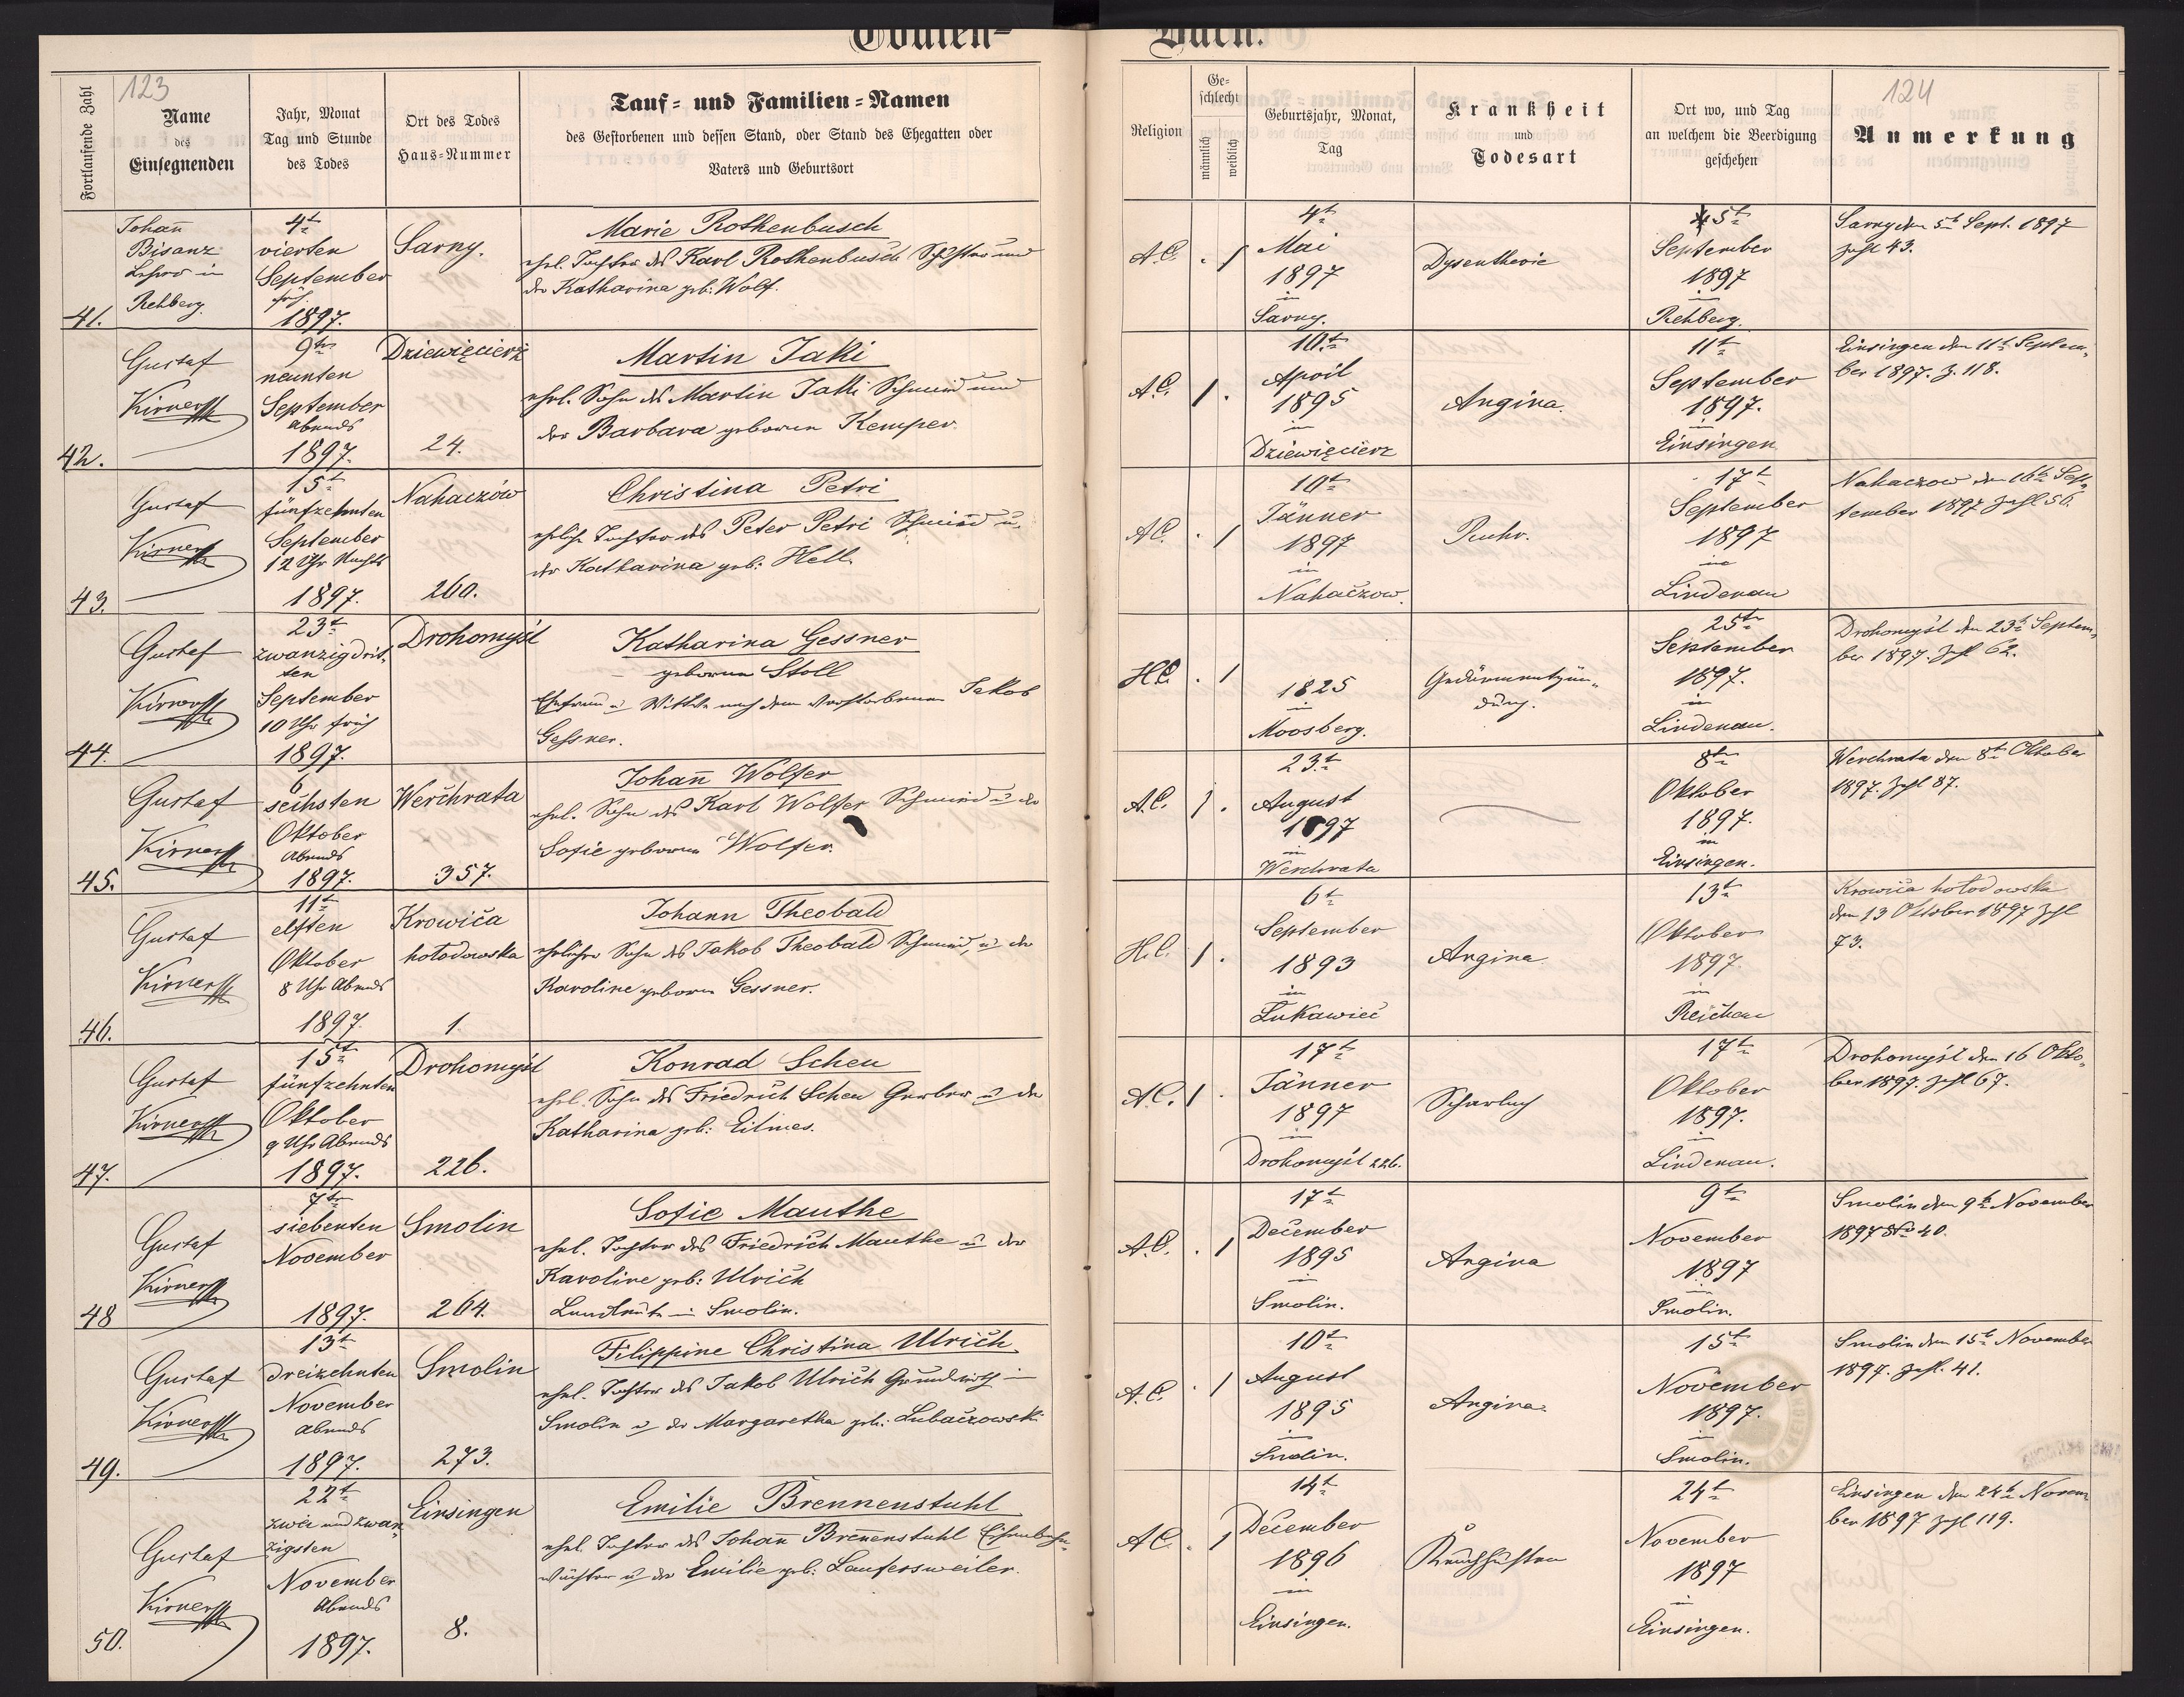 Todten-
Buch.
123
124
Fortlaufende Zahl
Name
des
Einsegnenden
Jahr, Monat
Tag und Stunde
des Todes
Ort des Todes
Haus-Nummer
Tauf- und Familien-Namen
des Gestorbenen und dessen Stand, oder Stand des Ehegatten oder
Vaters und Geburtsort
Religion
Ge-
schlecht
männlich
weiblich
Geburtsjahr, Monat,
Tag
Krankheit
und
Todesart
Ort wo, und Tag
an welchem die Beerdigung
geschehen
Anmerkung
41.
Johan̄
Bisanz
Lehrer in
Rehberg.
4t
vierten
September
früh
1897.
Sarny.
Marie Rothenbusch
ehel. Tochter des Karl Rothenbusch und
der Katharina geb: Wolf.
A.C.
. 1
4t
Mai
1897
in
Sarny.
Dysentherie
5t
September
1897
in
Rehberg.
Sarny den 5t Sept. 1897
Zahl 43.
42.
Gustaf
Kirner
9tn
neunten
September
Abends
1897.
Dziewięcierz
24.
Martin Jaki
ehel. Sohn des Martin Jaki Schmied und
der Barbara geboren Kemper.
A.C.
1 .
10.t
April
1895
in
Dziewięcierz
Angina.
11t
September
1897.
in
Einsingen
Einsingen den 11t Septem-
ber 1897. Z. 118.
43.
Gustaf
Kirner
15t
fünfzehnten
September
12 Uhr Nachts
1897.
Nahaczów
260.
Christina Petri
eheliche Tochter des Peter Petri Schmied u.
der Katharina geb: Hell.
A.C.
. 1
10t
Jänner
1897
in
Nahaczow.
Ruhr.
17t
September
1897
in
Lindenau
Nahaczow den 16t Sep-
tember 1897 Zahl 56.
44.
Gustaf
Kirner
23t
zwanzigdrit-
ten
September
10 Uhr früh
1897.
Drohomyśl
Katharina Gessner
geboren Stoll
Ehefrau u. Wittwe nach dem verstorbenen Jakob
Gessner.
H.C.
. 1
1825
in
Moosberg.
Gedärmentzün-
dung.
25tn
September
1897.
in
Lindenau.
Drohomyśl den 23t Septem-
ber 1897. Zahl 62.
45.
Gustaf
Kirner
6
sechsten
Oktober
Abends
1897.
Werchrata
357.
Johan̄ Wolfer
ehel. Sohn des Karl Wolfer Schmied u. der
Sofie geboren Wolfer.
A.C.
1 .
23.t
August
1897
in
Werchrata
8tn
Oktober
1897.
in
Einsingen.
Werchrata den 8t Oktober
1897. Zahl 87.
46.
Gustaf
Kirner
11t
elften
Oktober
8 Uhr Abends
1897.
Krowica
hołodowska
1
Johann Theobald
ehelicher Sohn des Jakob Theobald Schmied, u. der
Karoline geboren Gessner.
H.C.
1 .
6t
September
1893
in
Łukawiec
Angina
13t
Oktober
1897.
in
Reichau
Krowica hołodowska
den 13 Oktober 1897 Zahl
73.
47.
Gustaf
Kirner
15t
fünfzehnten
Oktober
9 Uhr Abends
1897.
Drohomyśl
226.
Konrad Scheu
ehel. Sohn des Friedrich Scheu Gerber u. der
Katharina geb: Eilmes.
A.C.
1 .
17t
Jänner
1897
in
Drohomyśl 226.
Scharlach
17t
Oktober
1897.
in
Lindenau.
Drohomyśl den 16 Okto-
ber 1897. Zahl 67.
48
Gustaf
Kirner
7tn
siebenten
November
1897.
Smolin
264.
Sofie Mauthe
ehel. Tochter des Friedrich Mauthe u. der
Karoline geb: Ulrich
Landleute in Smolin.
A.C.
. 1
17t
December
1895
in
Smolin.
Angina
9tn
November
1897
in
Smolin.
Smolin den 9t November
1897 No 40.
49.
Gustaf
Kirner
13t
Dreizehnten
November
Abends
1897.
Smolin
273.
Filippine Christina Ulrich
ehel. Tochter des Jakob Ulrich Grundwirth in
Smolin u. der Margaretha geb: Lubaczowski
A.C.
. 1
10t
August
1895
in
Smolin.
Angina.
15t
November
1897.
in
Smolin.
Smolin den 15t November
1897. Zahl. 41.
50.
Gustaf
Kirner
22t
zwei und zwan-
zigsten
November
Abends
1897.
Einsingen
8.
Emilie Brennenstuhl
ehel. Tochter des Johan̄ Bren̄enstuhl Eisenbahn-
wächter u. der Emilie geb: Laufersweiler.
A.C.
. 1
14t
December
1896
in
Einsingen.
Keuchhusten
24t
November
1897
in
Einsingen.
Einsingen den 24t Novem
ber 1897 Zahl 119.